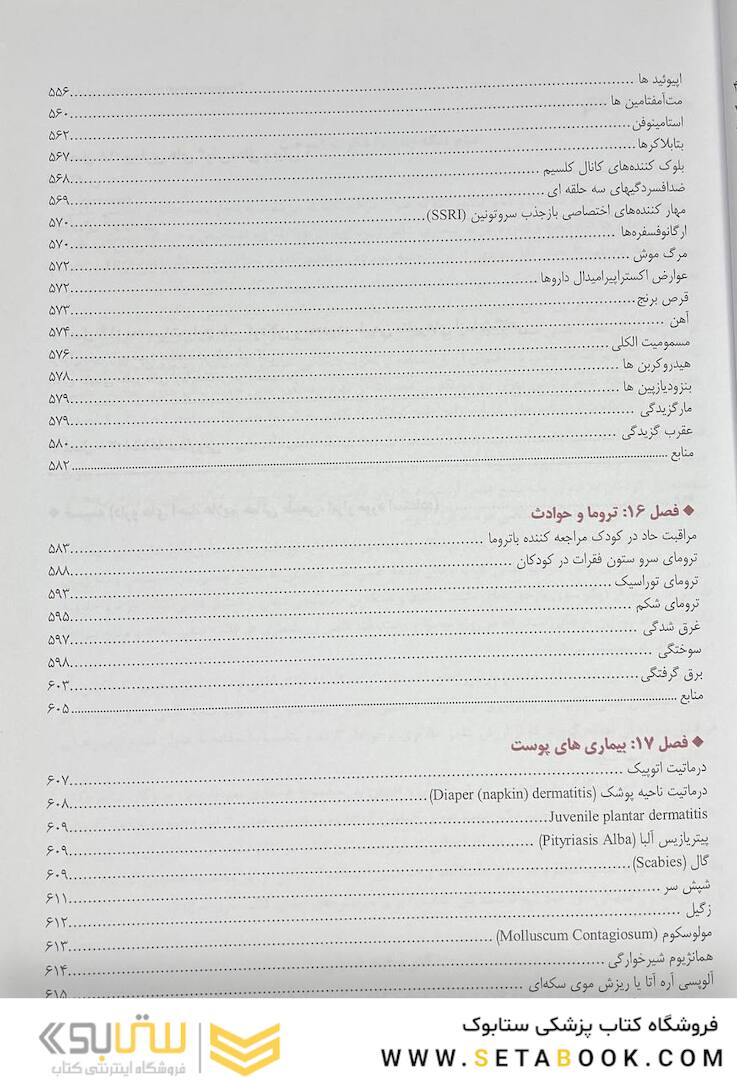 اپیوئید ها ...... ۵۵۶
مت‌آمفتامین ها ...... ۵۶۰
استامینوفن ...... ۵۶۲
بتابلاکرها ...... ۵۶۷
بلوک کننده‌های کانال کلسیم ...... ۵۶۸
ضدافسردگیهای سه حلقه ای ...... ۵۶۹
مهار کننده‌های اختصاصی بازجذب سروتونین (SSRI) ...... ۵۷۰
ارگانوفسفره‌ها ...... ۵۷۰
مرگ موش ...... ۵۷۲
عوارض اکستراپیرامیدال داروها ...... ۵۷۲
قرص برنج ...... ۵۷۳
آهن ...... ۵۷۴
مسمومیت الکلی ...... ۵۷۶
هیدروکربن ها ...... ۵۷۸
بنزودیازپین ها ...... ۵۷۹
مارگزیدگی ...... ۵۷۹
عقرب گزیدگی ...... ۵۸۰
منابع ...... ۵۸۲
◆ فصل ۱۶: تروما و حوادث
مراقبت حاد در کودک مراجعه کننده باتروما ...... ۵۸۳
ترومای سرو ستون فقرات در کودکان ...... ۵۸۸
ترومای توراسیک ...... ۵۹۳
ترومای شکم ...... ۵۹۵
غرق شدگی ...... ۵۹۷
سوختگی ...... ۵۹۸
برق گرفتگی ...... ۶۰۳
منابع ...... ۶۰۵
◆ فصل ۱۷: بیماری های پوست
درماتیت اتوپیک ...... ۶۰۷
درماتیت ناحیه پوشک (Diaper (napkin) dermatitis) ...... ۶۰۸
Juvenile plantar dermatitis ...... ۶۰۹
پیتریازیس آلبا (Pityriasis Alba) ...... ۶۰۹
گال (Scabies) ...... ۶۰۹
شپش سر ...... ۶۱۱
زگیل ...... ۶۱۲
مولوسکوم (Molluscum Contagiosum) ...... ۶۱۳
همانژیوم شیرخوارگی ...... ۶۱۴
آلوپسی آره آتا یا ریزش موی سکه‌ای ...... ۶۱۵
فروشگاه کتاب پزشکی ستابوک
WWW.SETABOOK.COM
ستابوک
فروشگاه اینترنتی کتاب